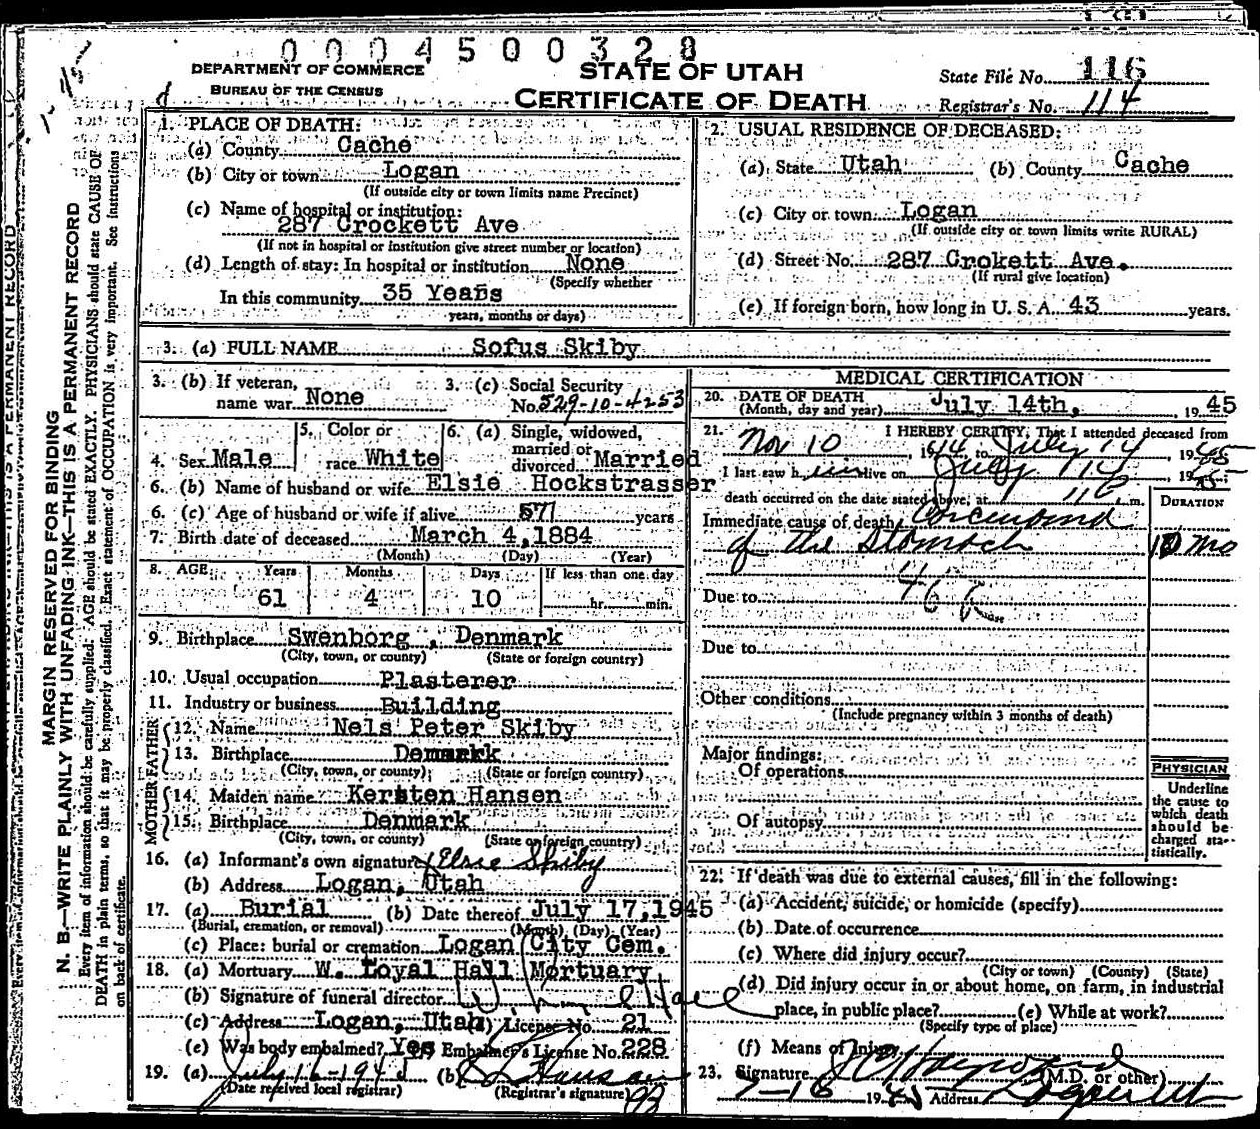 0004500328
DEPARTMENT OF COMMERCE
BUREAU OF THE CENSUS
STATE OF UTAH
CERTIFICATE OF DEATH
State File No. 116
Registrar's No. 114
MARGIN RESERVED FOR BINDING
N. B.—WRITE PLAINLY WITH UNFADING INK—THIS IS A PERMANENT RECORD
Every item of information should be carefully supplied. AGE should be stated EXACTLY. PHYSICIANS should state CAUSE OF
DEATH in plain terms, so that it may be properly classified. Exact statement of OCCUPATION is very important. See instructions
on back of certificate.
1. PLACE OF DEATH:
(a) County Cache
(b) City or town Logan
(If outside city or town limits name Precinct)
(c) Name of hospital or institution:
287 Crockett Ave
(If not in hospital or institution give street number or location)
(d) Length of stay: In hospital or institution None
(Specify whether
In this community 35 Years
years, months or days)
2. USUAL RESIDENCE OF DECEASED:
(a) State Utah (b) County Cache
(c) City or town Logan
(If outside city or town limits write RURAL)
(d) Street No. 287 Crokett Ave.
(If rural give location)
(e) If foreign born, how long in U. S. A. 43 years.
3. (a) FULL NAME Sofus Skiby
3. (b) If veteran, name war None
3. (c) Social Security No. 529-10-4253
4. Sex Male
5. Color or race White
6. (a) Single, widowed, married or divorced Married
6. (b) Name of husband or wife Elsie Hockstrasser
6. (c) Age of husband or wife if alive 57 years
7. Birth date of deceased March 4, 1884
(Month) (Day) (Year)
8. AGE Years Months Days If less than one day
61 4 10 hr. min.
9. Birthplace Swenborg, Denmark
(City, town, or county) (State or foreign country)
10. Usual occupation Plasterer
11. Industry or business Building
FATHER
12. Name Nels Peter Skiby
13. Birthplace Denmark
(City, town, or county) (State or foreign country)
MOTHER
14. Maiden name Kersten Hansen
15. Birthplace Denmark
(City, town, or county) (State or foreign country)
16. (a) Informant's own signature Elsie Skiby
(b) Address Logan, Utah
17. (a) Burial (b) Date thereof July 17, 1945
(Burial, cremation, or removal) (Month) (Day) (Year)
(c) Place: burial or cremation Logan City Cem.
18. (a) Mortuary W. Loyal Hall Mortuary
(b) Signature of funeral director W. Loyal Hall
(c) Address Logan, Utah (d) License No. 21
(e) Was body embalmed? Yes Embalmer's License No. 228
19. (a) July 16-1945 (b) Hansen
(Date received local registrar) (Registrar's signature)
MEDICAL CERTIFICATION
20. DATE OF DEATH
(Month, day and year) July 14th, 1945
21. I HEREBY CERTIFY, That I attended deceased from
Nov 10, 1944 to July 14, 1945
I last saw him alive on July 14, 1945;
death occurred on the date stated above, at m.
DURATION
Immediate cause of death Carcinoma
of the Stomach 10 mo
Due to 46
Due to
Other conditions
(Include pregnancy within 3 months of death)
Major findings:
Of operations
Of autopsy
PHYSICIAN
Underline
the cause to
which death
should be
charged sta-
tistically.
22. If death was due to external causes, fill in the following:
(a) Accident, suicide, or homicide (specify)
(b) Date of occurrence
(c) Where did injury occur?
(City or town) (County) (State)
(d) Did injury occur in or about home, on farm, in industrial
place, in public place? (e) While at work?
(Specify type of place)
(f) Means of Injury
23. Signature (M.D. or other)
7-16 1945 Address Logan Ut